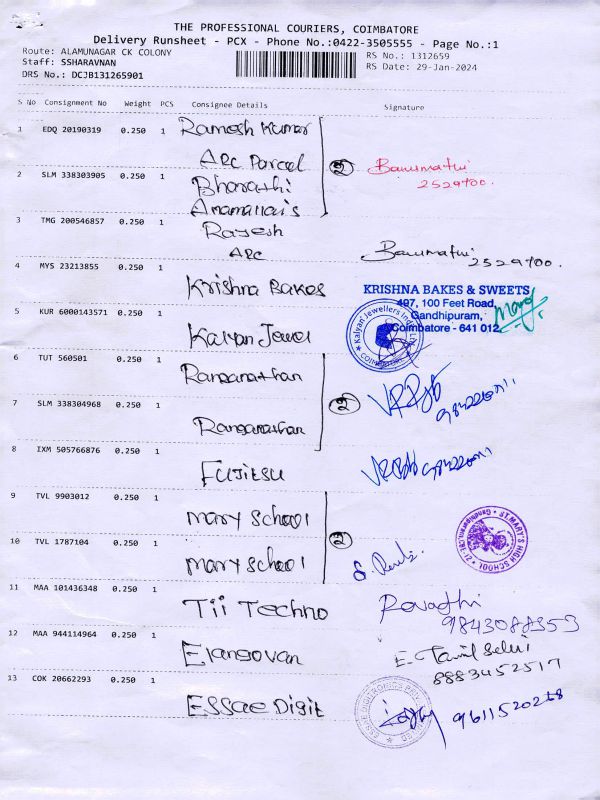 THE PROFESSIONAL COURIERS, COIMBATORE
Delivery Runsheet - PCX - Phone No.:0422-3505555 - Page No.:1
Route: ALAMUNAGAR CK COLONY
RS No.: 1312659
Staff: SSHARAVNAN
RS Date: 29-Jan-2024
DRS No.: DCJB131265901
S No Consignment No Weight PCS Consignee Details Signature
1 EDQ 20190319 0.250 1 Ramesh Kumar
ARC Parcel
2 SLM 338303905 0.250 1 Bharathi
2 Banumathi
2529700.
3 TMG 200546857 0.250 1 Rajesh
ARC
Banumathi
2529700.
4 MYS 23213855 0.250 1 Krishna Bakes
KRISHNA BAKES & SWEETS
407, 100 Feet Road,
Gandhipuram,
Coimbatore - 641 012
5 KUR 6000143571 0.250 1 Kalyan Jewel
Kalyan Jewellers India Ltd
6 TUT 560501 0.250 1 Ranganathan
7 SLM 338304968 0.250 1 Ranganathan
2
8 IXM 505766876 0.250 1 Fujitsu
9 TVL 9903012 0.250 1 Mary School
10 TVL 1787104 0.250 1 Mary School
2
ST.MARY'S HIGH SCHOOL
11 MAA 101436348 0.250 1 Tii Techno
Revathi
9843088353
12 MAA 944114964 0.250 1 Elangovan
E. Tamil Selvi
8883452517
13 COK 20662293 0.250 1 ESSAE Digit